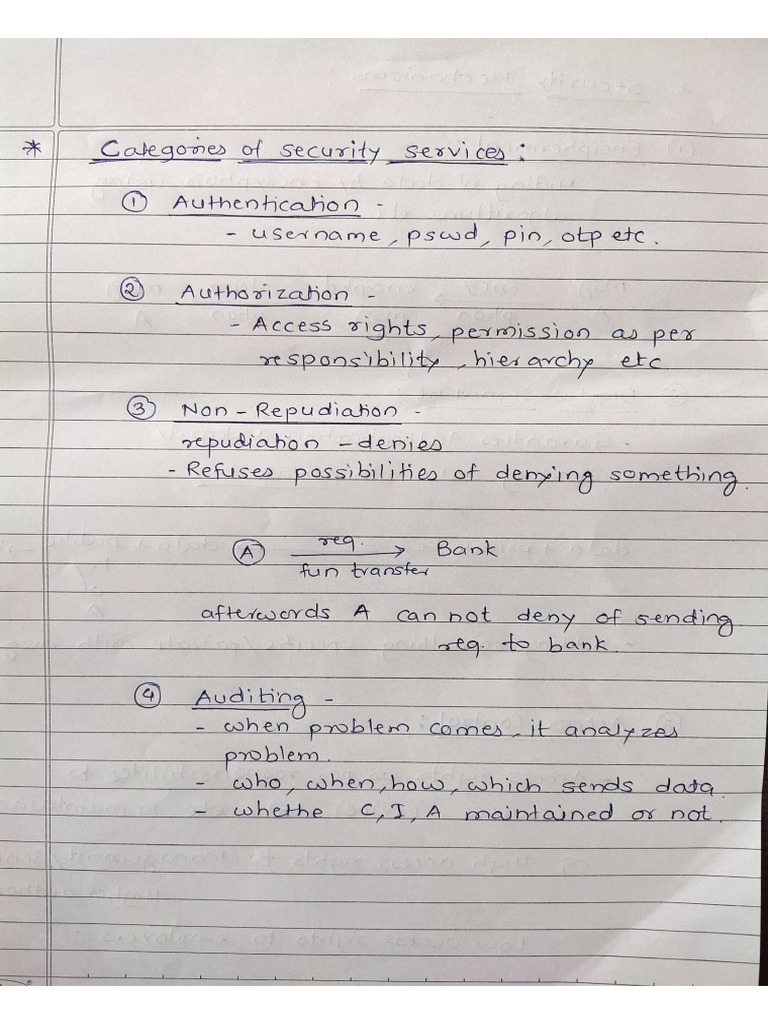 * Categories of security services :
① Authentication -
- username, pswd, pin, otp etc.
② Authorization -
- Access rights, permission as per
responsibility, hierarchy etc
③ Non-Repudiation -
repudiation - denies
- Refuses possibilities of denying something.
Ⓐ req. → Bank
fun transfer
afterwords A can not deny of sending
req. to bank.
④ Auditing -
- when problem comes, it analyzes
problem.
- who, when, how, which sends data.
- whethe C, I, A maintained or not.